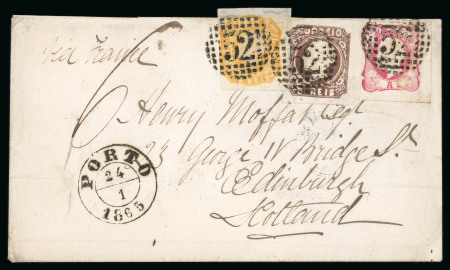 via France
52
52
52
REIS
Henry Moffat Esqr
23 George IV Bridge St
Edinburgh
Scotland
PORTO
24
1
1865